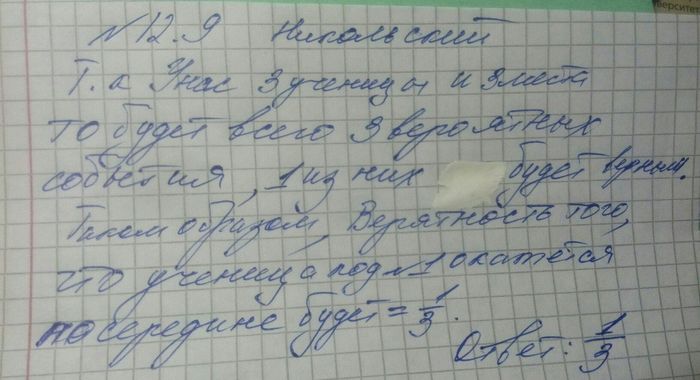 верситет
N 12.9 Никольский
Т.к У нас 3 ученицы и 3 места
то будет всего 3 вероятных
события, 1 из них будет верным.
Таком образом, Верятность того,
что ученица под N1 окажется
посередине будет = 1/3.
Ответ: 1/3